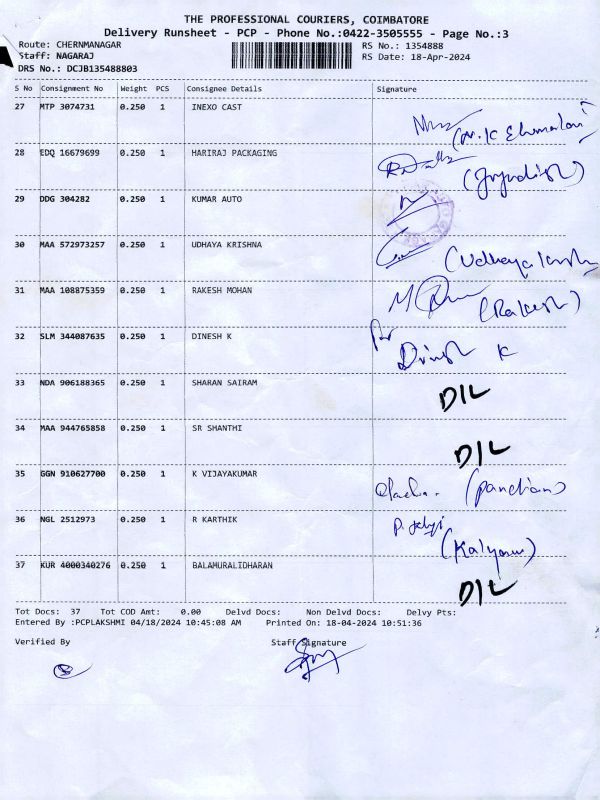 THE PROFESSIONAL COURIERS, COIMBATORE
Delivery Runsheet - PCP - Phone No.:0422-3505555 - Page No.:3
Route: CHERNMANAGAR RS No.: 1354888
Staff: NAGARAJ RS Date: 18-Apr-2024
DRS No.: DCJB135488803
S No Consignment No Weight PCS Consignee Details Signature
27 MTP 3074731 0.250 1 INEXO CAST
28 EDQ 16679699 0.250 1 HARIRAJ PACKAGING
29 DDG 304282 0.250 1 KUMAR AUTO
30 MAA 572973257 0.250 1 UDHAYA KRISHNA
31 MAA 108875359 0.250 1 RAKESH MOHAN (Rakesh)
32 SLM 344087635 0.250 1 DINESH K Dinesh K
33 NDA 906188365 0.250 1 SHARAN SAIRAM D/L
34 MAA 944765858 0.250 1 SR SHANTHI D/L
35 GGN 910627700 0.250 1 K VIJAYAKUMAR (pandian)
36 NGL 2512973 0.250 1 R KARTHIK
37 KUR 4000340276 0.250 1 BALAMURALIDHARAN D/L
Tot Docs: 37 Tot COD Amt: 0.00 Delvd Docs: Non Delvd Docs: Delvy Pts:
Entered By :PCPLAKSHMI 04/18/2024 10:45:08 AM Printed On: 18-04-2024 10:51:36
Verified By Staff Signature